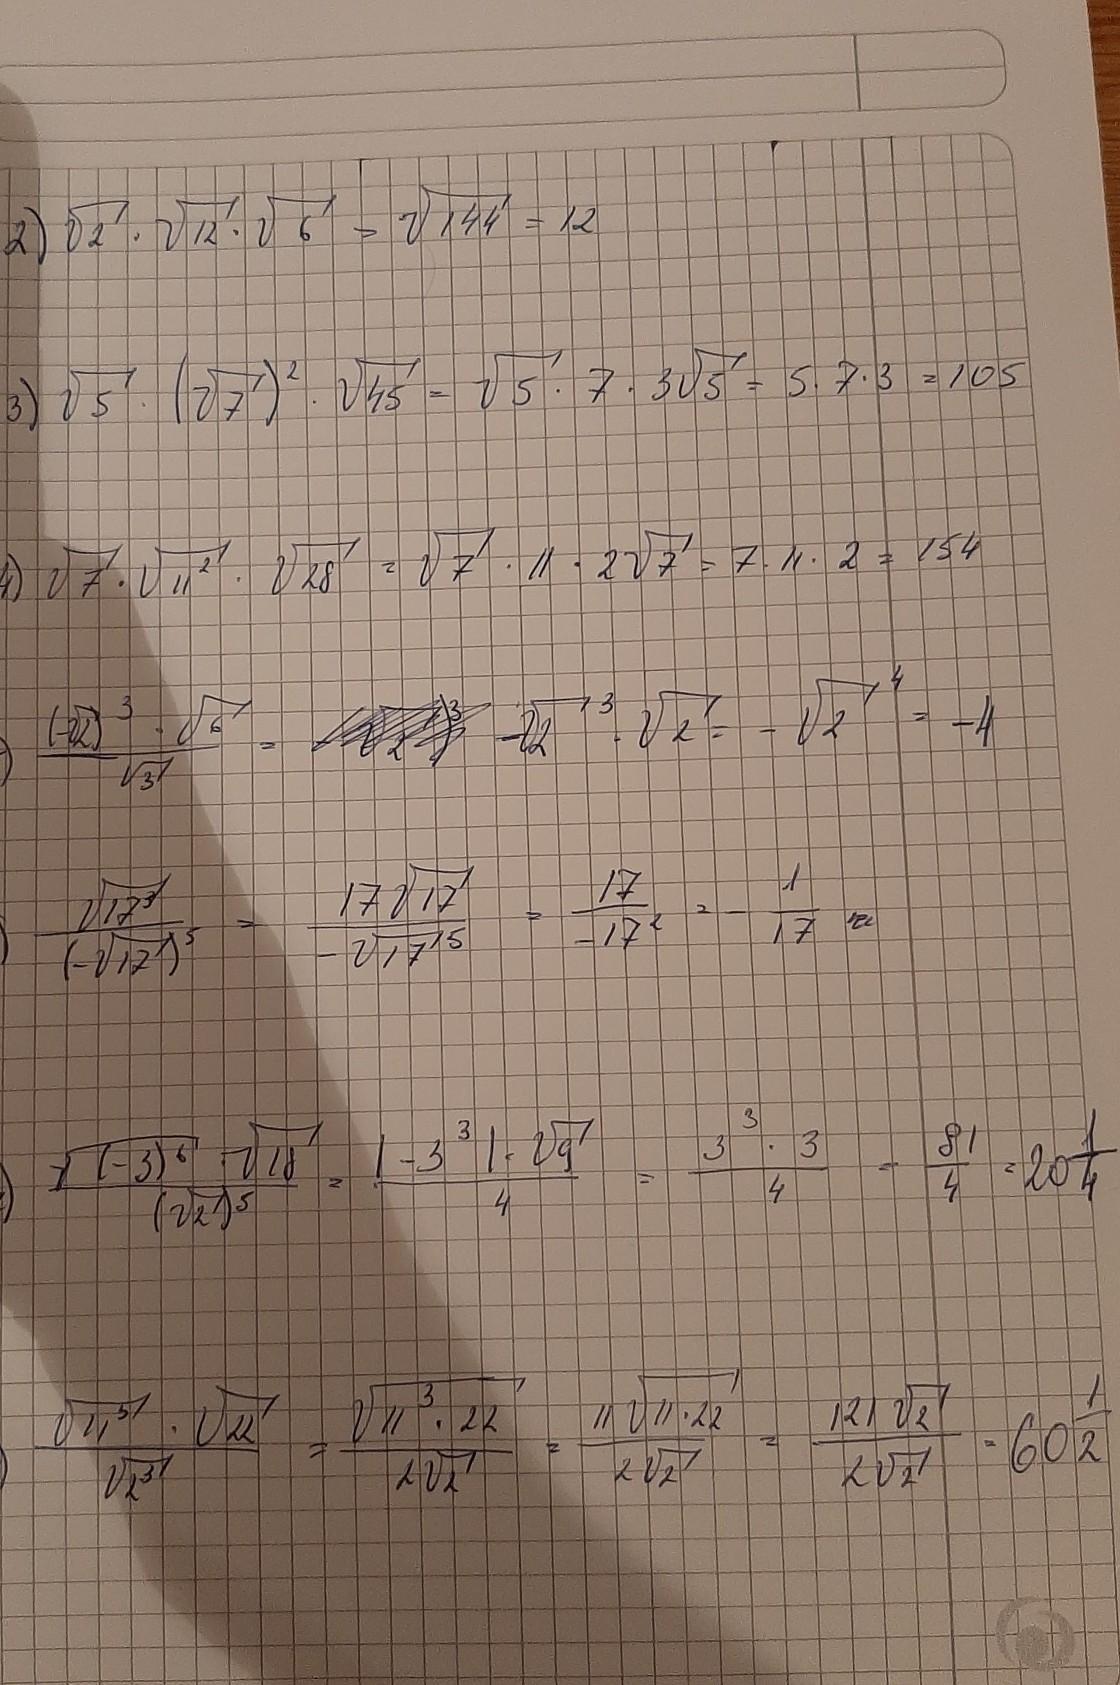 2) √2 · √12 · √6 = √144 = 12
3) √5 · (√7)² · √45 = √5 · 7 · 3√5 = 5 · 7 · 3 = 105
4) √7 · √11² · √28 = √7 · 11 · 2√7 = 7 · 11 · 2 = 154
) (-√2)³ · √6 / √3 = -√2³ · √2 = -√2⁴ = -4
) √17³ / (-√17)⁵ = 17√17 / -√17⁵ = 17 / -17² = - 1/17
) √(-3)⁶ · √18 / (√2)⁵ = |-3³| · √9 / 4 = 3³ · 3 / 4 = 81/4 = 20 1/4
) √11³ · √22 / √2³ = √(11³ · 22) / 2√2 = 11√(11·22) / 2√2 = 121√2 / 2√2 = 60 1/2